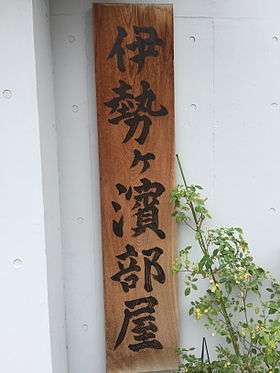 伊勢ヶ濱部屋